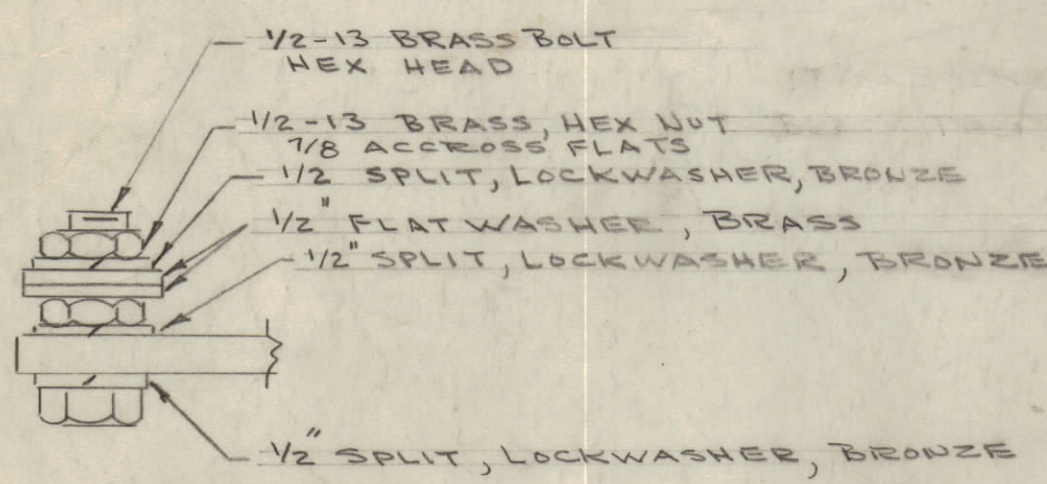 1/2-13 BRASS BOLT
HEX HEAD
1/2-13 BRASS, HEX NUT
7/8 ACCROSS FLATS
1/2 SPLIT, LOCKWASHER, BRONZE
1/2" FLAT WASHER, BRASS
1/2" SPLIT, LOCKWASHER, BRONZE
1/2" SPLIT, LOCKWASHER, BRONZE